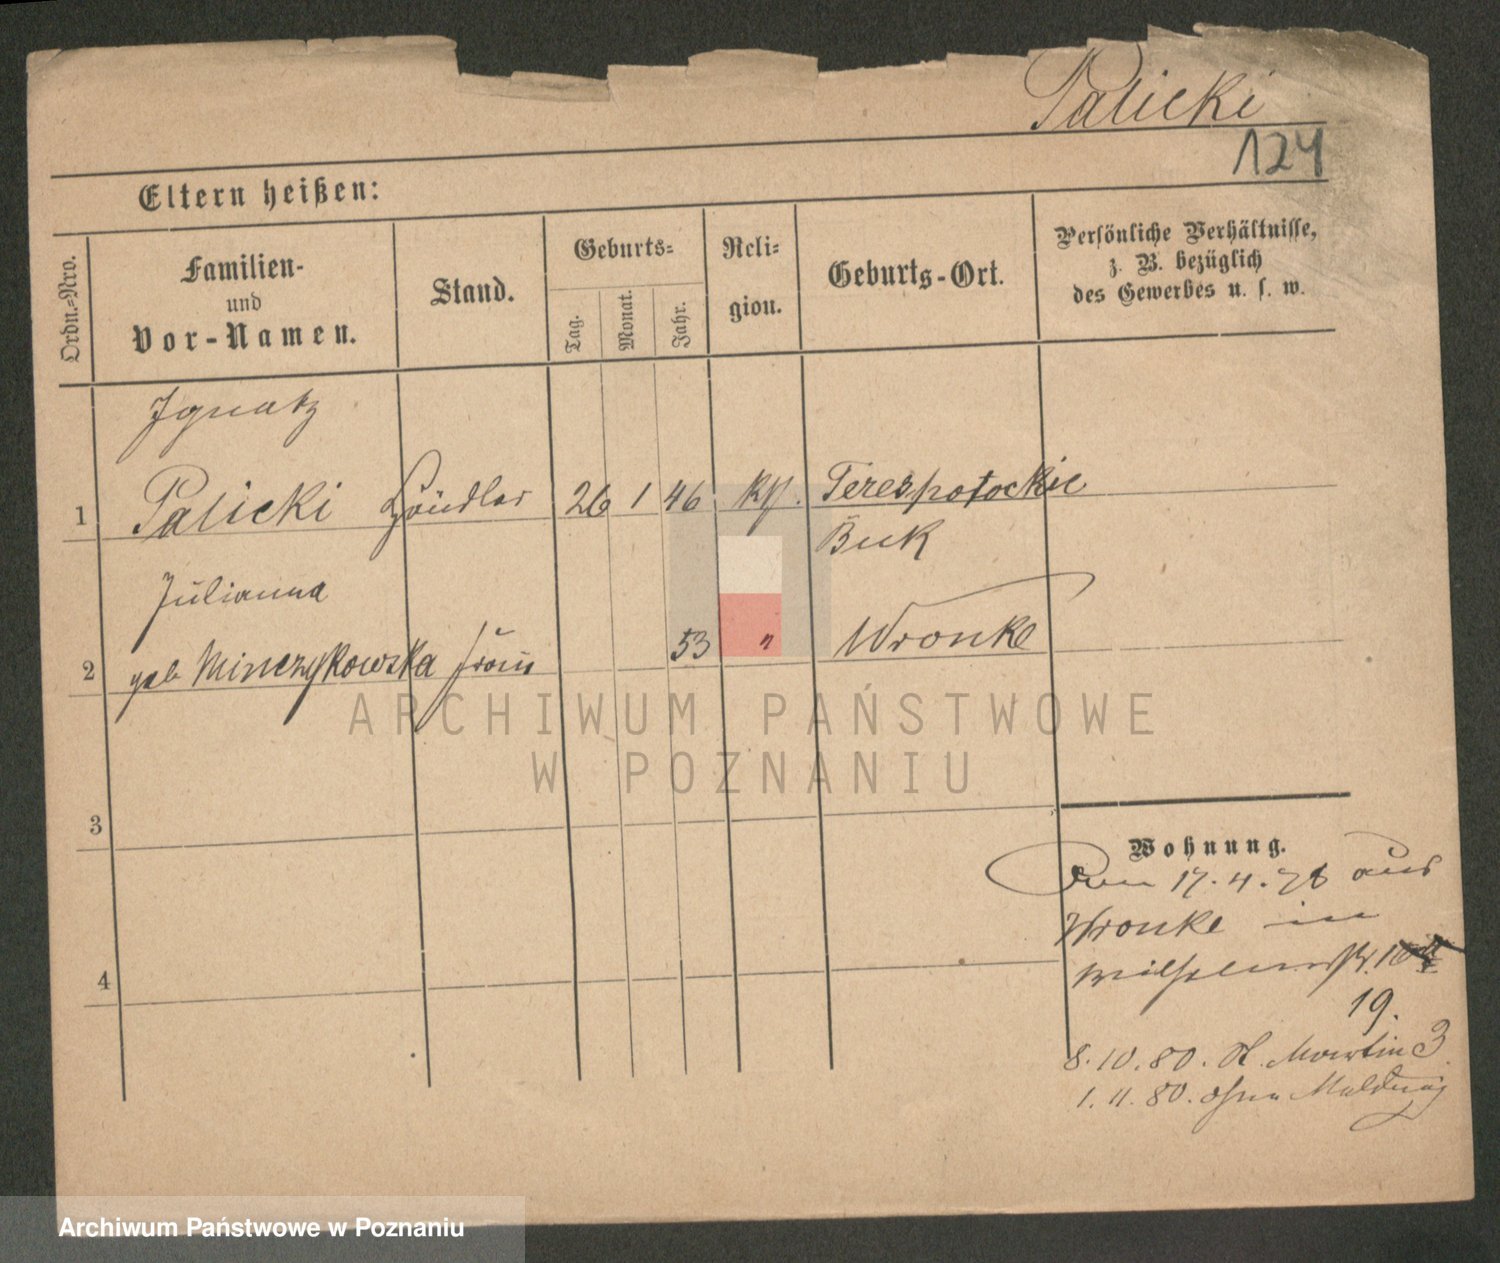 Palicki
124
Eltern heißen:
Ordn.-Nro.
Familien-
und
Vor-Namen.
Stand.
Geburts-
Tag.
Monat.
Jahr.
Reli-
gion.
Geburts-Ort.
Persönliche Verhältnisse,
z. B. bezüglich
des Gewerbes u. s. w.
Ignatz
1 Palicki Händler 26 1 46 Kth. Terespotockie
Buk
Julianna
2 geb Minczykowska Frau 53 " Wronke
3
4
Wohnung.
Den 17.4.78 aus
Wronke in
Wilhelmstr. 10
19.
8.10.80. St. Martin 3
1.11.80. ohne Meldung
ARCHIWUM PAŃSTWOWE
W POZNANIU
Archiwum Państwowe w Poznaniu